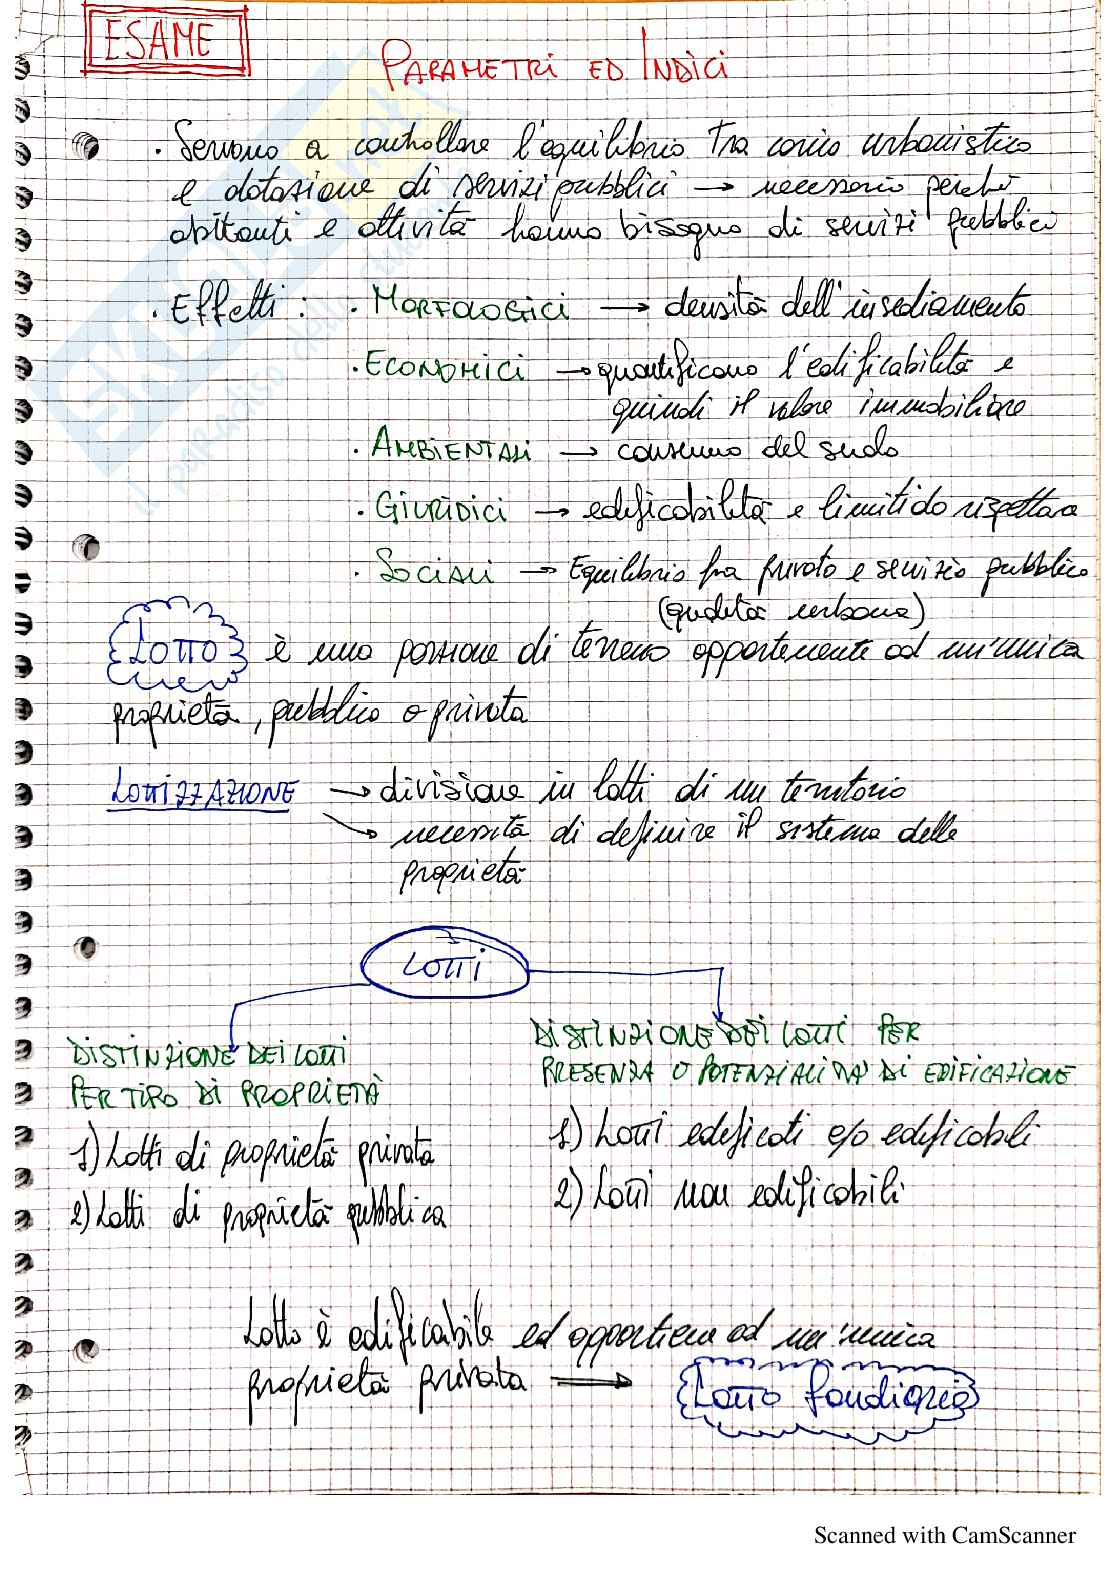 ESAME
PARAMETRI ED INDICI
· Servono a controllare l'equilibrio tra carico urbanistico
e dotazione di servizi pubblici → necessario perché
abitanti e attività hanno bisogno di servizi pubblici
· Effetti : · MORFOLOGICI → densità dell'insediamento
· ECONOMICI → quantificano l'edificabilità e
quindi il valore immobiliare
· AMBIENTALI → consumo del suolo
· GIURIDICI → edificabilità e limiti da rispettare
· SOCIALI → Equilibrio fra privato e servizio pubblico
(qualità urbana)
LOTTO è una porzione di terreno appartenente ad un'unica
proprietà, pubblica o privata
LOTTIZZAZIONE → divisione in lotti di un territorio
→ necessità di definire il sistema delle
proprietà
LOTTI
DISTINZIONE DEI LOTTI
PER TIPO DI PROPRIETÀ
1) Lotti di proprietà privata
2) Lotti di proprietà pubblica
DISTINZIONE DEI LOTTI PER
PRESENZA O POTENZIALITÀ DI EDIFICAZIONE
1) Lotti edificati e/o edificabili
2) Lotti non edificabili
Lotto è edificabile ed appartiene ad un'unica
proprietà privata → Lotto fondiario
Scanned with CamScanner